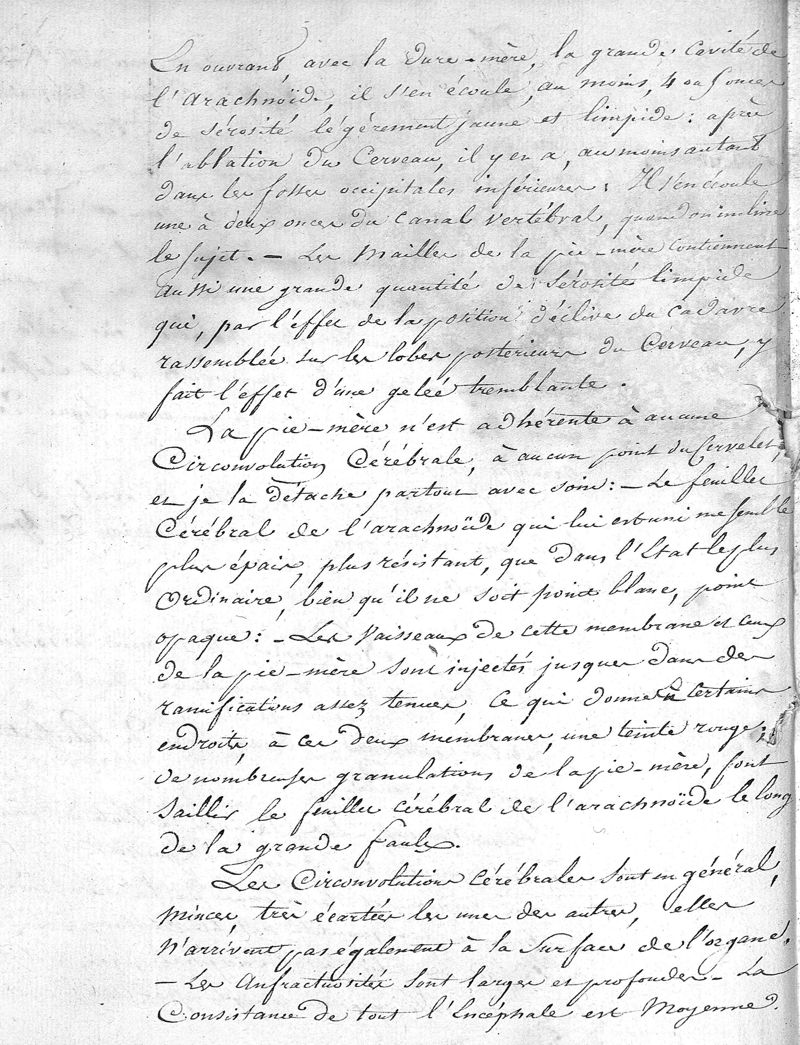 En ouvrant, avec la dure-mère, la grande Cavité de
l'Arachnoïde, il s'en écoule, au moins, 4 ou 5 onces
de sérosité légérement jaune et limpide : après
l'ablation du Cerveau, il y en a, au moins autant
dans les fosses occipitales inférieures ; Il s'en écoule
une à deux onces du canal vertébral, quand on incline
le sujet. — Les Mailles de la pie-mère contiennent
aussi une grande quantité de sérosité limpide
qui, par l'effet de la position déclive du cadavre
rassemblée sur les lobes postérieurs du Cerveau, y
fait l'effet d'une gelée tremblante.
La pie-mère n'est adhérente à aucune
Circonvolution Cérébrale, à aucun point du Cervelet,
et je la détache partout avec soin : — Le feuillet
Cérébral de l'arachnoïde qui lui est uni me semble
plus épais, plus résistant, que dans l'État le plus
Ordinaire, bien qu'il ne soit point blanc, point
opaque : — Les Vaisseaux de cette membrane et ceux
de la pie-mère sont injectés jusques dans des
ramifications assez tenues, ce qui donne en Certains
endroits, à ces deux membranes, une teinte rouge ;
de nombreuses granulations de la pie-mère, font
saillir le feuillet cérébral de l'arachnoïde le long
de la grande faulx.
Les Circonvolutions cérébrales sont en général,
minces, très écartées les unes des autres, elles
N'arrivent pas également à la Surface de l'organe.
— Les Anfractuosités sont larges et profondes — La
Consistance de tout l'Encéphale est Moyenne.